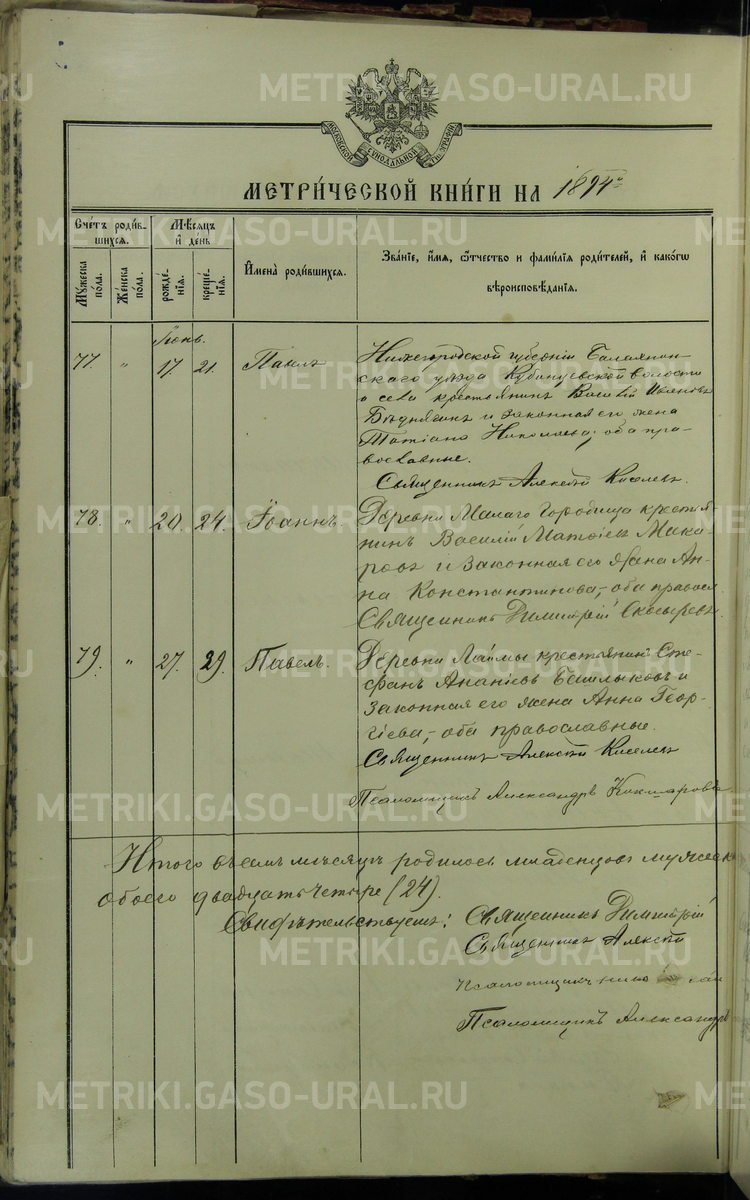 METRIKI.GASO-URAL.RU
МОСКОВСКОЙ СѴНОДАЛЬНОЙ ТИПОГРАФІИ
МЕТРИ́ЧЕСКОЙ КНИ́ГИ НА 1894 г.
Сче́тъ роди́в-
шихся.
Мꙋ́жеска по́ла.
Же́нска по́ла.
Мѣ́сяцъ
и҆ де́нь
рожде́-
нія.
креще́-
нія.
И҆мена̀ роди́вшихся.
Зва́ніе, и҆́мя, ѻ҆́тчество и фами́лія роди́телей, и҆ како́гѡ
вѣроисповѣ́данія.
Іюнь.
77. " 17 21. Павелъ
Нижегородской губерніи Балахнин-
скаго уѣзда Кубинцевской волости
и села крестьянинъ Василій Ивановъ
Бѣднягинъ и законная его жена
Татіана Николаева; оба пра-
вославные.
Священникъ Алексѣй Киселевъ
78. " 20. 24. Іоаннъ.
Деревни Малаго Городища крестья-
нинъ Василій Матѳіевъ Мака-
ровъ и законная его жена Ан-
на Константинова,- оба правосл.
Священникъ Димитрій
79. " 27. 29. Павелъ.
Деревни Лаймы крестьянинъ Сте-
фанъ Ананіевъ Башлыковъ и
законная его жена Анна Геор-
гіева,- оба православные.
Священникъ Алексѣй Киселевъ
Псаломщикъ Александръ Кокшаровъ
Итого въ семъ мѣсяцѣ родилось младенцовъ мужеска
обоего двадцать четыре (24).
Свидѣтельствуемъ: Священникъ Димитрій
Священникъ Алексѣй
Псаломщикъ
Псаломщикъ Александръ